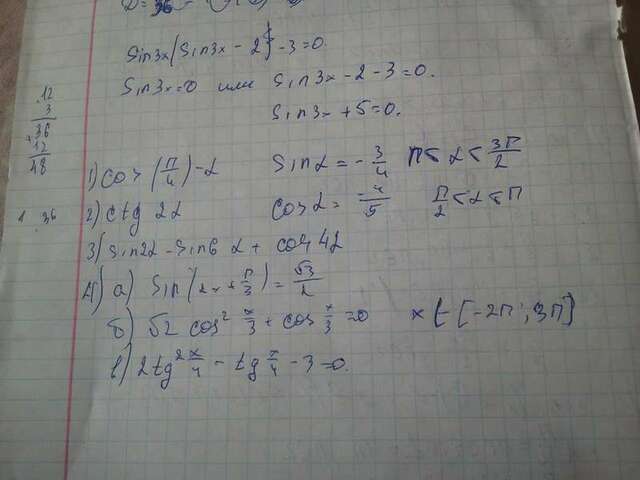 sin3x(sin3x - 2) - 3 = 0.
sin3x = 0 или sin3x - 2 - 3 = 0.
sin3x + 5 = 0.
12
3
36
+12
48
1) cos (π/4) - α sinα = - 3/4 π ≤ α ≤ 3π/2
1 36
2) ctg 2α cosα = -4/5 π/2 ≤ α ≤ π
3) sin2α - sin6α + cos4α
4) а) sin(2x + π/3) = √3/2
б) √2 cos² x/3 + cos x/3 = 0 x ∈ [-2π; 3π]
в) 2tg² x/4 - tg x/4 - 3 = 0.